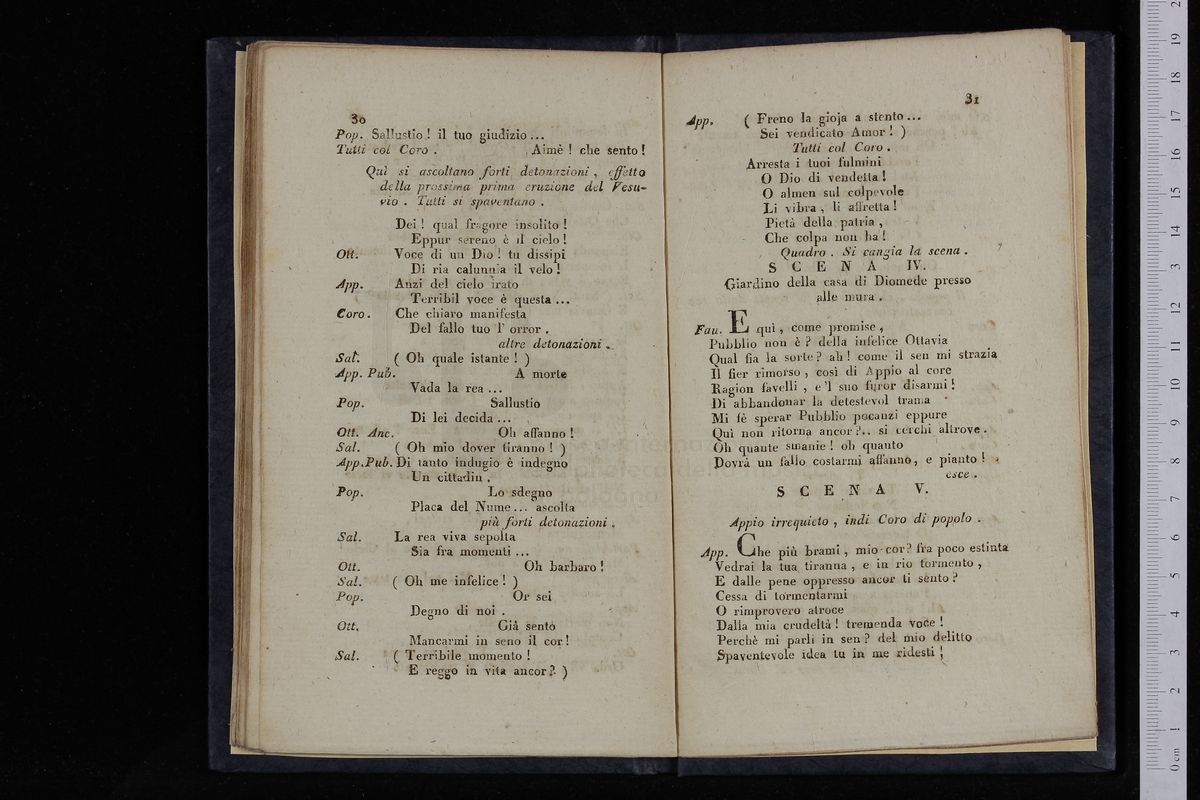 30
Pop. Sallustio! il tuo giudizio...
Tutti col Coro. Aimè! che sento!
Quì si ascoltano forti detonazioni, effetto
della prossima prima eruzione del Vesu-
vio. Tutti si spaventano.
Dei! qual fragore insolito!
Eppur sereno è il cielo!
Ott. Voce di un Dio! tu dissipi
Di ria calunnia il velo!
App. Anzi del cielo irato
Terribil voce è questa...
Coro. Che chiaro manifesta
Del fallo tuo l' orror.
altre detonazioni.
Sal. ( Oh quale istante! )
App. Pub. A morte
Vada la rea...
Pop. Sallustio
Di lei decida...
Ott. Anc. Oh affanno!
Sal. ( Oh mio dover tiranno! )
App. Pub. Di tanto indugio è indegno
Un cittadin.
Pop. Lo sdegno
Placa del Nume... ascolta
più forti detonazioni.
Sal. La rea viva sepolta
Sia fra momenti...
Ott. Oh barbaro!
Sal. ( Oh me infelice! )
Pop. Or sei
Degno di noi.
Ott. Già sento
Mancarmi in seno il cor!
Sal. ( Terribile momento!
E reggo in vita ancor? )
31
App. ( Freno la gioja a stento...
Sei vendicato Amor! )
Tutti col Coro.
Arresta i tuoi fulmini
O Dio di vendetta!
O almen sul colpevole
Li vibra, li affretta!
Pietà della patria,
Che colpa non ha!
Quadro. Si cangia la scena.
SCENA IV.
Giardino della casa di Diomede presso
alle mura.
Fau. E quì, come promise,
Pubblio non è? della infelice Ottavia
Qual fia la sorte? ah! come il sen mi strazia
Il fier rimorso, così di Appio al core
Ragion favelli, e 'l suo furor disarmi!
Di abbandonar la detestevol trama
Mi fè sperar Pubblio pocanzi eppure
Quì non ritorna ancor?.. si cerchi altrove.
Oh quante smanie! oh quanto
Dovrà un fallo costarmi affanno, e pianto!
esce.
SCENA V.
Appio irrequieto, indi Coro di popolo.
App. Che più brami, mio cor? fra poco estinta
Vedrai la tua tiranna, e in rio tormento,
E dalle pene oppresso ancor ti sento?
Cessa di tormentarmi
O rimprovero atroce
Dalla mia crudeltà! tremenda voce!
Perchè mi parli in sen? del mio delitto
Spaventevole idea tu in me ridesti!
0 cm 1 2 3 4 5 6 7 8 9 10 11 12 13 14 15 16 17 18 19